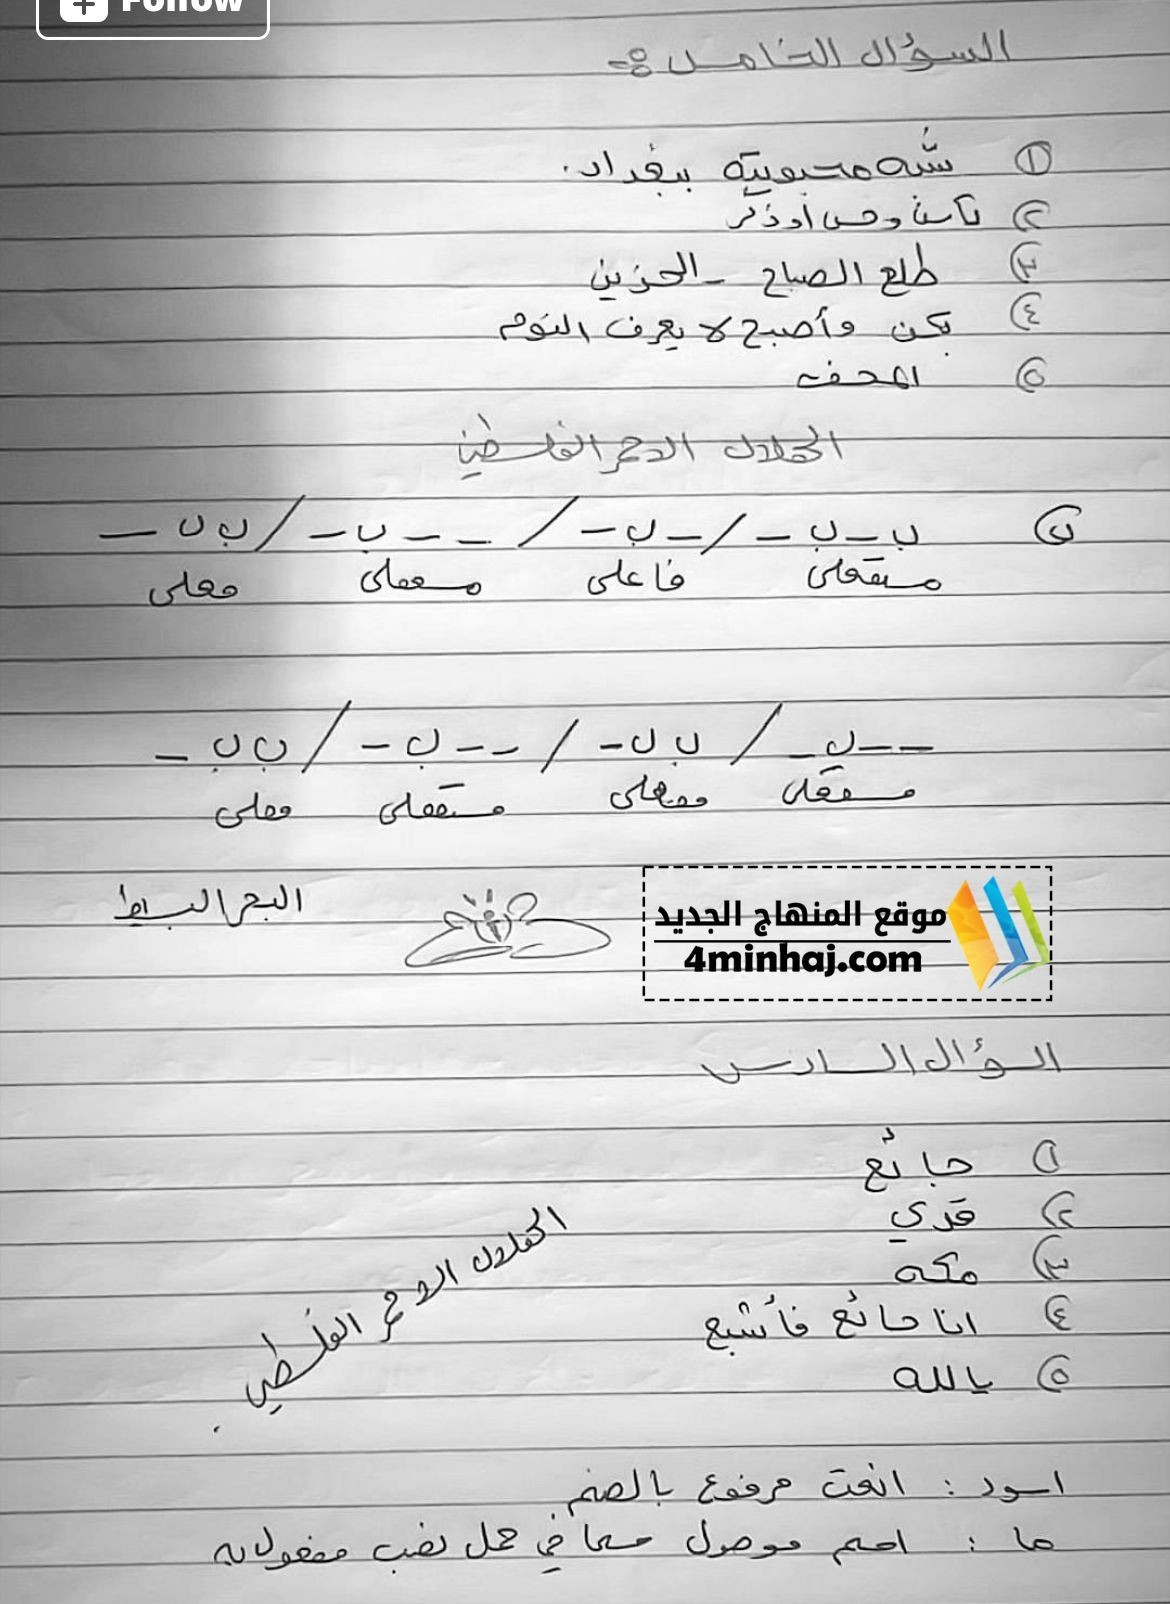 Follow
السؤال الخامس :-
١ شبه محبوبته ببغداد.
٢
٣ طلع الصباح - الحزين
٤ يكن وأصبح لا يعرف النوم
٥
الهلال الاحمر الفلسطيني
ب ب - ب - / - ب - / - - ب - / ب ب -
مستفعلن فاعلن مستفعلن فعلن
- - ب - / ب ب - / - - ب - / ب ب -
مستفعلن فعلن مستفعلن فعلن
البحر البسيط
موقع المنهاج الجديد
4minhaj.com
السؤال السادس
١ جائع
٢ قدي
٣ مكة
٤ انا جائع فأشبع
٥ بالله
الهلال الاحمر الفلسطيني
اسود : انعت مرفوع بالضم
ما : اسم موصول مبنا في محل نصب مفعول به